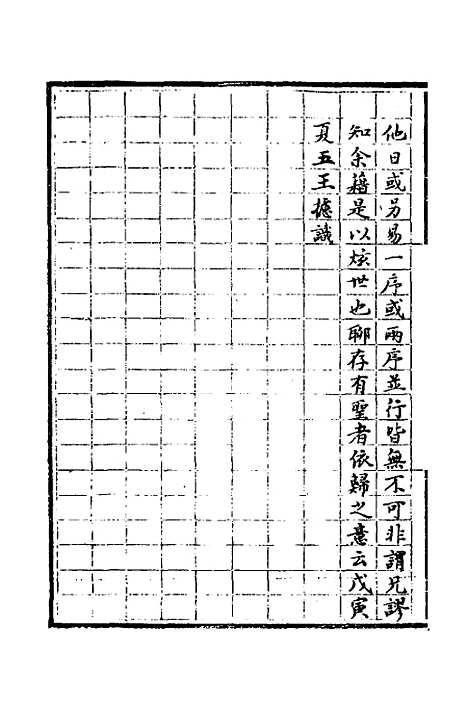 他日或另易一序或兩序並行皆無不可非謂兄謬
知余藉是以炫世也聊存有聖者依歸之意云戊寅
夏五王摅識